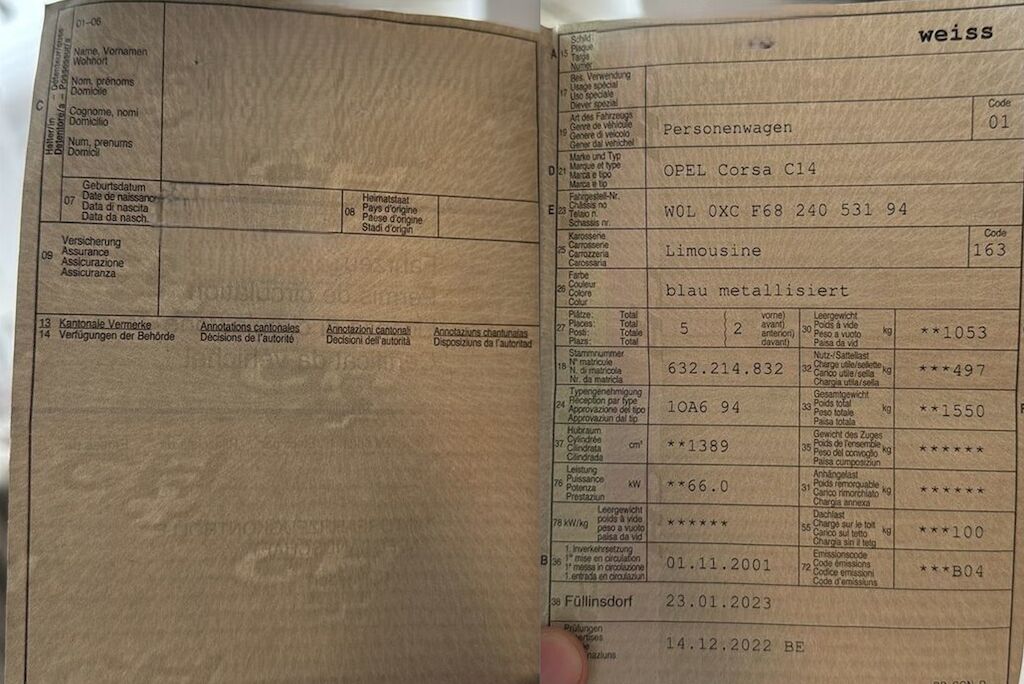 01-06
C
Halter/in - Détenteur/trice
Detentore/a - Possessur/a
Name, Vornamen
Wohnort
Nom, prénoms
Domicile
Cognome, nomi
Domicilio
Num, prenums
Domicil
07
Geburtsdatum
Date de naissance
Data di nascita
Data da nasch.
08
Heimatstaat
Pays d'origine
Paese d'origine
Stadi d'origin
09
Versicherung
Assurance
Assicurazione
Assicuranza
13 Kantonale Vermerke Annotations cantonales Annotazioni cantonali Annotaziuns chantunalas
14 Verfügungen der Behörde Décisions de l'autorité Decisioni dell'autorità Disposiziuns da l'autoritad
A 15
Schild
Plaque
Targa
Numer
weiss
17
Bes. Verwendung
Usage spécial
Uso speciale
Diever spezial
19
Art des Fahrzeugs
Genre de véhicule
Genere di veicolo
Gener dal vehichel
Personenwagen
Code
01
D 21
Marke und Typ
Marque et type
Marca e tipo
Marca e tip
OPEL Corsa C14
E 23
Fahrgestell-Nr.
Châssis no
Telaio n.
Schassis nr.
W0L 0XC F68 240 531 94
25
Karosserie
Carrosserie
Carrozzeria
Carossaria
Limousine
Code
163
26
Farbe
Couleur
Colore
Colur
blau metallisiert
27
Plätze: Total
Places: Total
Posti: Totale
Plazs: Total
5
2
vorne)
avant)
anteriori)
davant)
30
Leergewicht
Poids à vide
Peso a vuoto
Paisa da vid
kg
**1053
18
Stammnummer
N° matricule
N. di matricola
Nr. da matricla
632.214.832
32
Nutz-/Sattellast
Charge utile/sellette
Carico utile/sella
Chargia utila/sella
kg
***497
24
Typengenehmigung
Réception par type
Approvazione del tipo
Approvaziun dal tip
1OA6 94
33
Gesamtgewicht
Poids total
Peso totale
Paisa totala
kg
**1550
37
Hubraum
Cylindrée
Cilindrata
Cilindrada
cm³
**1389
35
Gewicht des Zuges
Poids de l'ensemble
Peso del convoglio
Paisa cumposiziun
kg
******
76
Leistung
Puissance
Potenza
Prestaziun
kW
**66.0
31
Anhängelast
Poids remorquable
Carico rimorchiato
Chargia annexa
kg
******
78 kW/kg
Leergewicht
poids à vide
peso a vuoto
paisa da vid
******
55
Dachlast
Charge sur le toit
Carico sul tetto
Chargia sin il tetg
kg
***100
B 36
1. Inverkehrsetzung
1re mise en circulation
1a messa in circolazione
1. entrada en circulaziun
01.11.2001
72
Emissionscode
Code émissions
Codice emissioni
Code d'emissiuns
***B04
38 Füllinsdorf 23.01.2023
Prüfungen
14.12.2022 BE